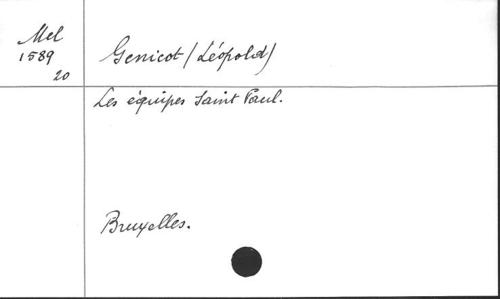 Mel
1589
20
Genicot (Léopold)
Les équipes Saint Paul.
Bruxelles.